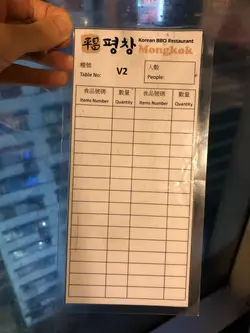 평창 Korean BBQ Restaurant
Mongkok
檯號 人數
Table No: V2 People:
食品號碼 數量 食品號碼 數量
Items Number Quantity Items Number Quantity